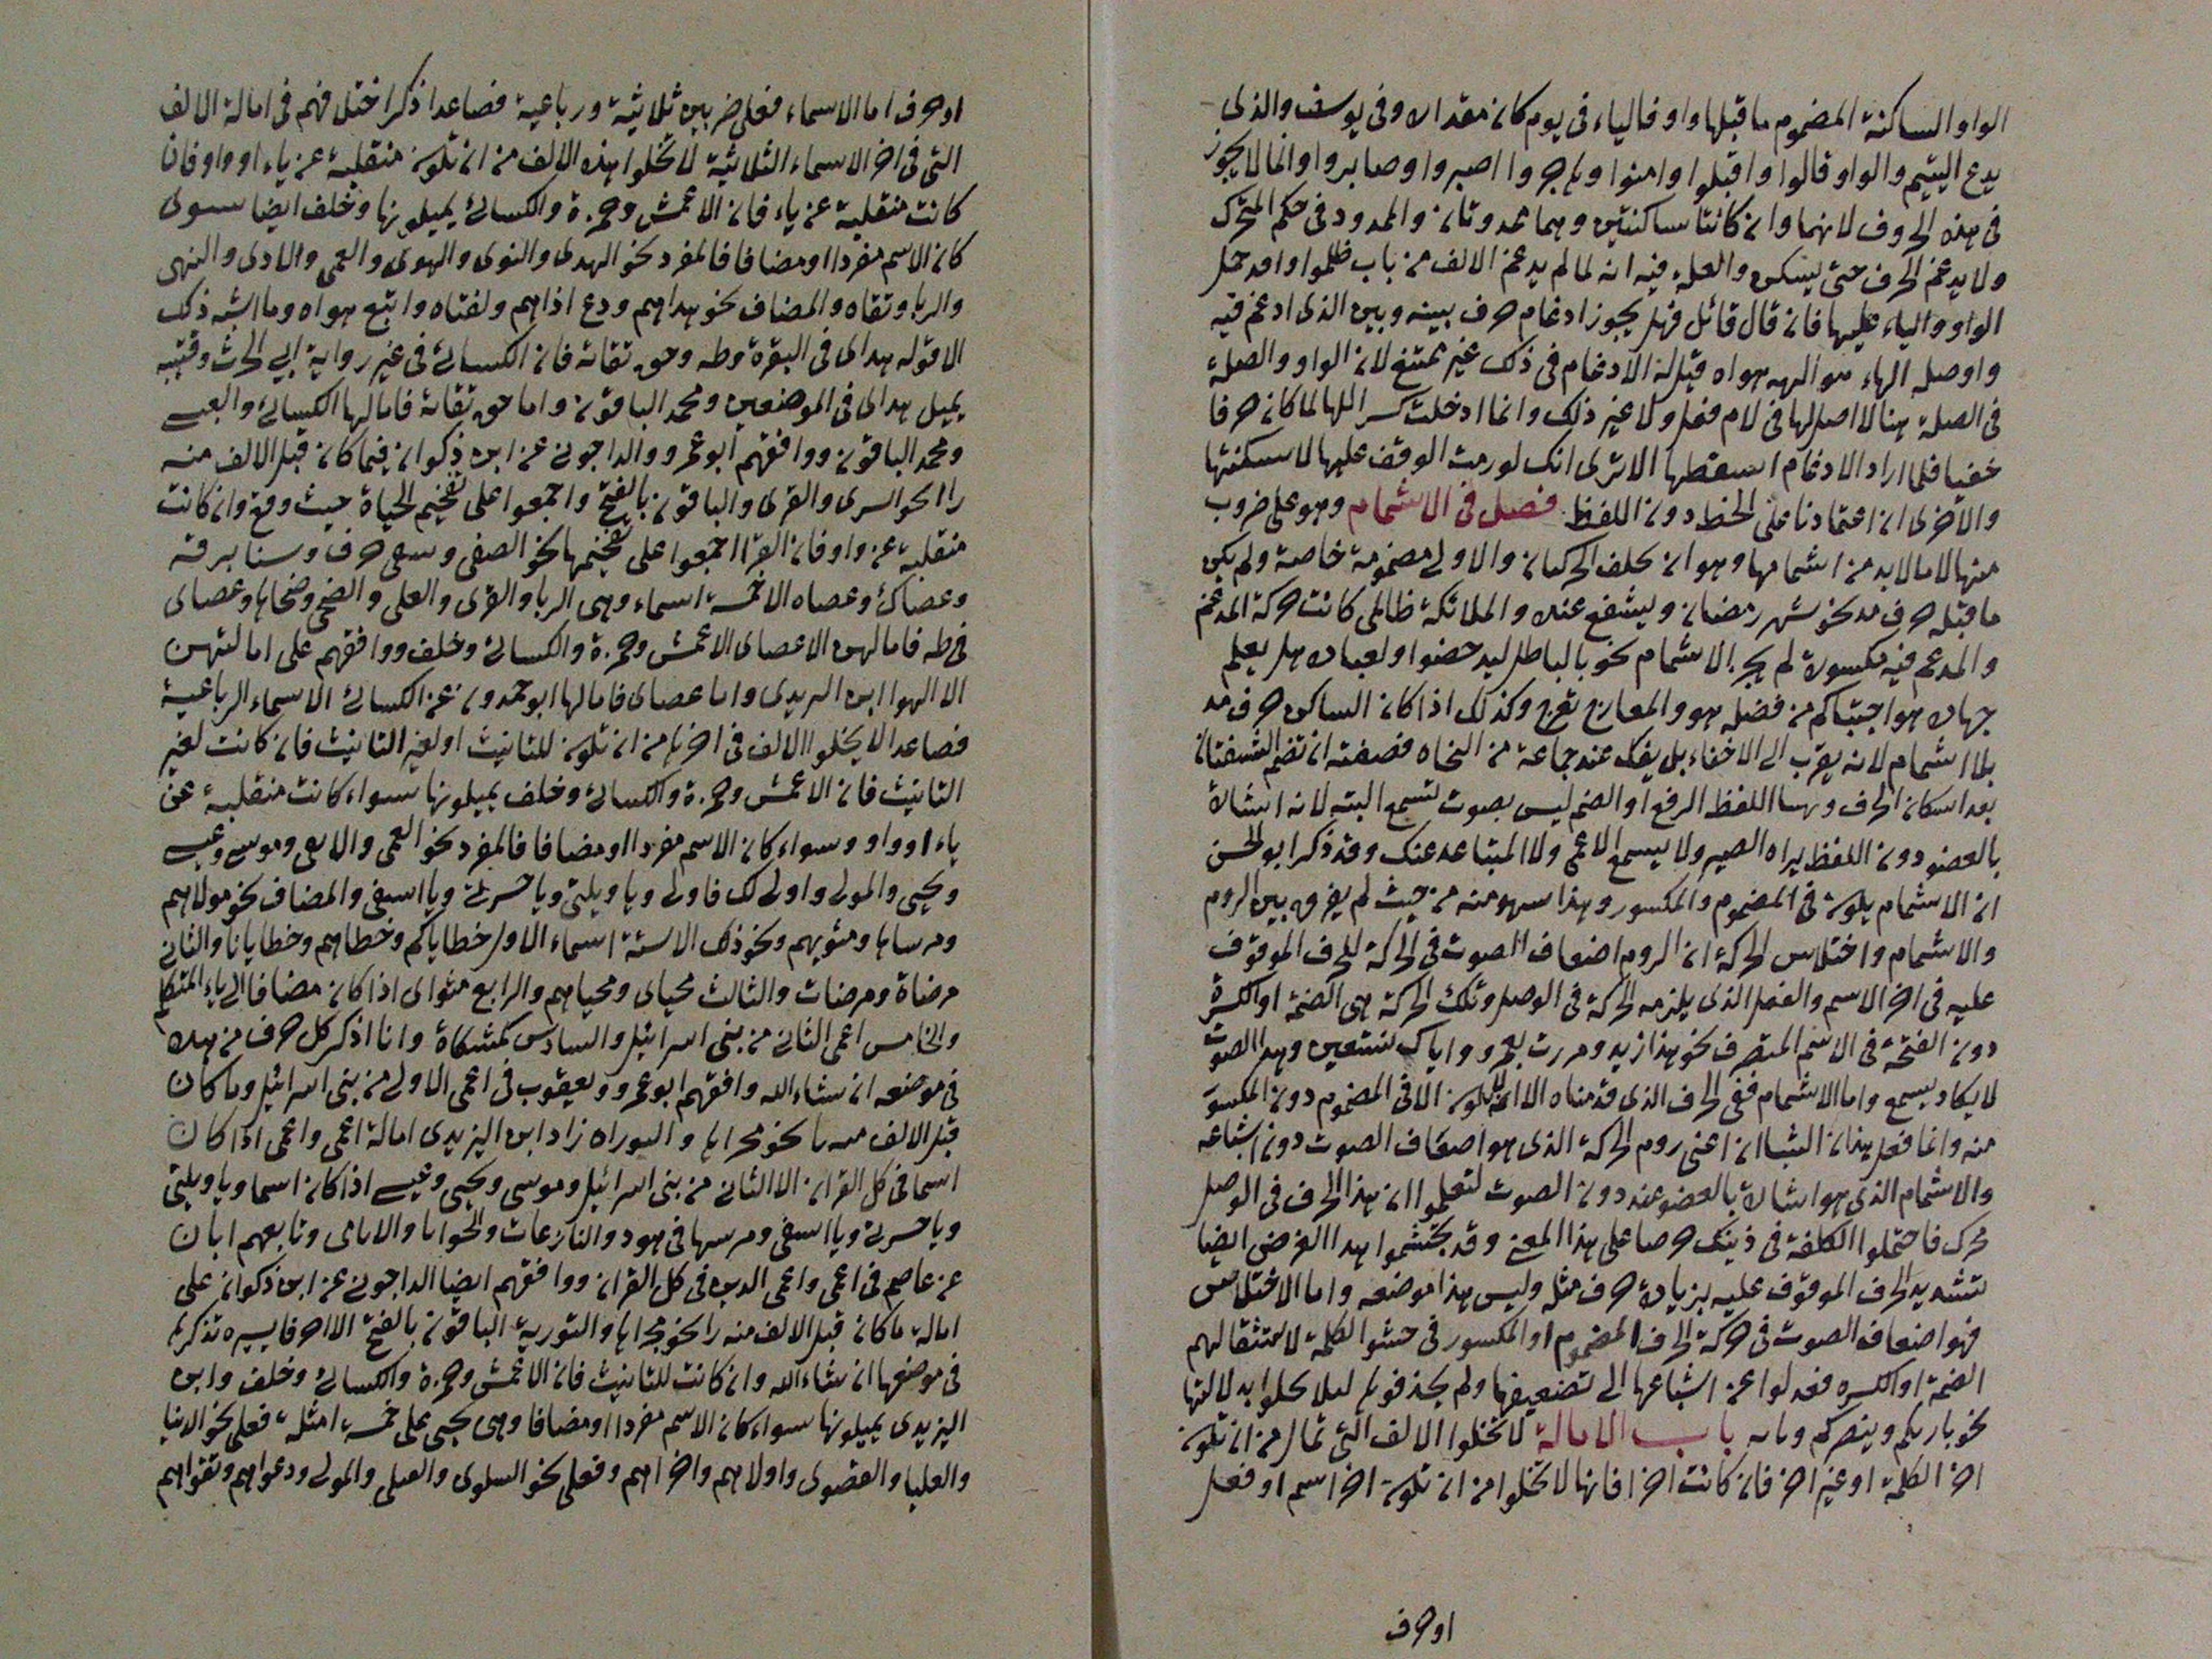 الواو الساكنة المضموم ما قبلها واو فالياء في يوم كان مقداره وفي يوسف والذي
يدع اليتيم والواو قالوا واقبلوا وامنوا وهاجروا اصبروا وصابروا وانما لا يجوز
في هذه الحروف لانهما وان كانتا ساكنتين وهما ممدوتان والممدود في حكم المتحرك
ولا يدغم الحرف حتى يسكن والعلة فيه انه لما لم يدغم الالف من باب ظلموا واقد حمل
الواو والياء عليها فان قال قائل فهل يجوز ادغام حرف بينه وبين الذي ادغم فيه
واو صلة الهاء الهه هواه قيل له الادغام في ذلك غير ممتنع لان الواو والصلة
في الصلة هنا لا اصل لها في لام فعل ولا غير ذلك وانما ادخلت لها لما كان حرفا
خفيا فلما اراد الادغام اسقطها الا ترى انك لو رمت الوقف عليها لاسكنتها
والاخرى ان اعتمادنا على الخط دون اللفظ فصل في الاشمام وهو على ضروب
منها لا ما لا بد من اشمامها وهو ان الحركتان والاولى مضمومة خاصة ولم يكن
ما قبله حرف مد نحو شهر رمضان ويشفع عنده والملائكة ظالمي كانت حركة المدغم
والمدغم فيه مكسورة لم يجز الاشمام نحو بالباطل ليدحضوا ولعباده هل يعلم
جهاده هو اجتباكم من فضله هو والمعارج تعرج وكذلك اذا كان الساكن حرف مد
بلا اشمام لانه يقرب الى الاخفاء بل يفك عند جماعة من النحاه فصفته ان تضم الشفتان
بعد اسكان الحرف اللفظ الرفع او الضم ليس بصوت تسمع البته لانه اشارة
بالعضو دون اللفظ يراه البصير ولا يسمع الاعمى ولا المتباعد عنك وقد ذكر ابو الحسن
ان الاشمام يكون في المضموم والمكسور وهذا سهو منه من حيث لم يفرق بين الروم
والاشمام واختلاس الحركة ان الروم اضعاف الصوت في الحركة للحرف الموقوف
عليه في اخر الاسم والفعل الذي يلزمه الحركة في الوصل وتلك الحركة هي الضمة او الكسرة
دون الفتحة في الاسم المتصرف نحو هذا زيد ومررت بعمرو واياك نستعين وهذا الصوت
لا يكاد يسمع واما الاشمام ففي الحرف الذي قدمناه الا انه لا يكون الا في المضموم دون المكسور
منه وانما فعل هذان الشيئان اعني روم الحركة الذي هو اضعاف الصوت دون اشباعه
والاشمام الذي هو اشارة بالعضو عنه دون الصوت لتعلموا ان هذا الحرف في الوصل
محرك فاحتملوا الكلفة في ذينك حرصا على هذا المعنى وقد يجتشموا بهذا الغرض ايضا
تشديد الحرف الموقوف عليه بزيادة حرف مثله وليس هذا موضعه واما الاختلاس
فهو اضعاف الصوت في حركة الحرف المضموم او المكسور في حشو الكلمة لاستثقالهم
الضمة او الكسره فعدلوا عن اشباعها الى تضعيفها ولم يحذفوها لئلا يخلوا بدلالتها
نحو بارئكم وينصركم وبابه باب الامالة لا تخلوا الالف التي تمال من ان تكون
اخر الكلمة او غير اخر فان كانت اخرا فانها لا تخلوا من ان تكون اخر اسم او فعل
او حرف
او حرف اما الاسماء فعلى ضربين ثلاثية ورباعية فصاعدا ذكر اختلافهم في امالة الالف
التي في اخر الاسماء الثلاثية لا تخلوا هذه الالف من ان تكون منقلبة عن ياء او واو فان
كانت منقلبة عن ياء فان الاعمش وحمزة والكسائي يميلونها وخلف ايضا سوى
كان الاسم مفردا او مضافا فالمفرد نحو الهدى والنوى والهوى والعمى والاذى والنهى
والربا وتقاه والمضاف نحو هداهم ودع اذاهم ولفتاه واتبع هواه وما اشبه ذلك
الا قوله هداى في البقرة وطه وحق تقاته فان الكسائي في غير رواية ابي الحرث وقتيبه
يميل هداى في الموضعين ومحمد الباقون واما حق تقاته فامالها الكسائي والعبسي
ومحمد الباقون ووافقهم ابو عمرو والداجوني عن ابن ذكوان فيما كان قبل الالف منه
را نحو السرى والقرى والباقون بالفتح واجمعوا على تفخيم الحياة حيث وقع وان كانت
منقلبة عن واو فان القرا اجمعوا على تفخيمها نحو الصفي وشفي حرف وسنا برقه
وعصاك وعصاه الا خمسة اسماء وهي الربا والقرى والعلى والضحى وضحاها وعصاى
في طه فامالهن الا عصاى الاعمش وحمزة والكسائي وخلف ووافقهم على امالتهن
الا الهوا ابن اليزيدي واما عصاى فامالها ابو حمدون عن الكسائي الاسماء الرباعية
فصاعدا لا يخلوا الالف في اخرها من ان تكون للتانيث او لغير التانيث فان كانت لغير
التانيث فان الاعمش وحمزة والكسائي وخلف يميلونها سواء كانت منقلبة عن
ياء او واو وسواء كان الاسم مفردا او مضافا فالمفرد نحو العمى والاعمى وموسى وعيسى
ويحيى والمولى واولى لك فاولى ويا ويلتى ويا حسرتى ويا اسفى والمضاف نحو مولاهم
ومرساها ومثويهم ونحو ذلك الا ستة اسماء الاول خطاياكم وخطاهم وخطايانا والثاني
مرضاة ومرضات والثالث محياى ومحياهم والرابع مثواى اذا كان مضافا الى ياء المتكلم
والخامس اعمى الثاني من بني اسرائيل والسادس كمشكاة وانا اذكر كل حرف من هذه
في موضعه ان شاء الله وافقهم ابو عمرو ويعقوب في اعمى الاولى من بني اسرائيل وما كان
قبل الالف منه را نحو مجراها والتوراه زاد ابن اليزيدي امالة اعمى واعمى اذا كان
اسما في كل القران الا الثاني من بني اسرائيل وموسى ويحيى وعيسى اذا كان اسما ويا ويلتى
ويا حسرتى ويا اسفى ومرسها في هود والنازعات والحوايا والايامى وتابعهم ابان
عن عاصم في اعمى واعمى الذين في كل القران ووافقهم ايضا الداجوني عن ابن ذكوان على
امالة ما كان قبل الالف منه را نحو مجراها والتورية الباقون بالفتح الا احرفا يسيره تذكر
في موضعها ان شاء الله وان كانت للتانيث فان الاعمش وحمزة والكسائي وخلف وابن
اليزيدي يميلونها سواء كان الاسم مفردا او مضافا وهي تجيى على خمسة امثلة فعلى نحو الدنيا
والعليا والقصوى واولاهم واخراهم وفعلى نحو السلوى والقتلى والمولى ودعواهم وتقواهم